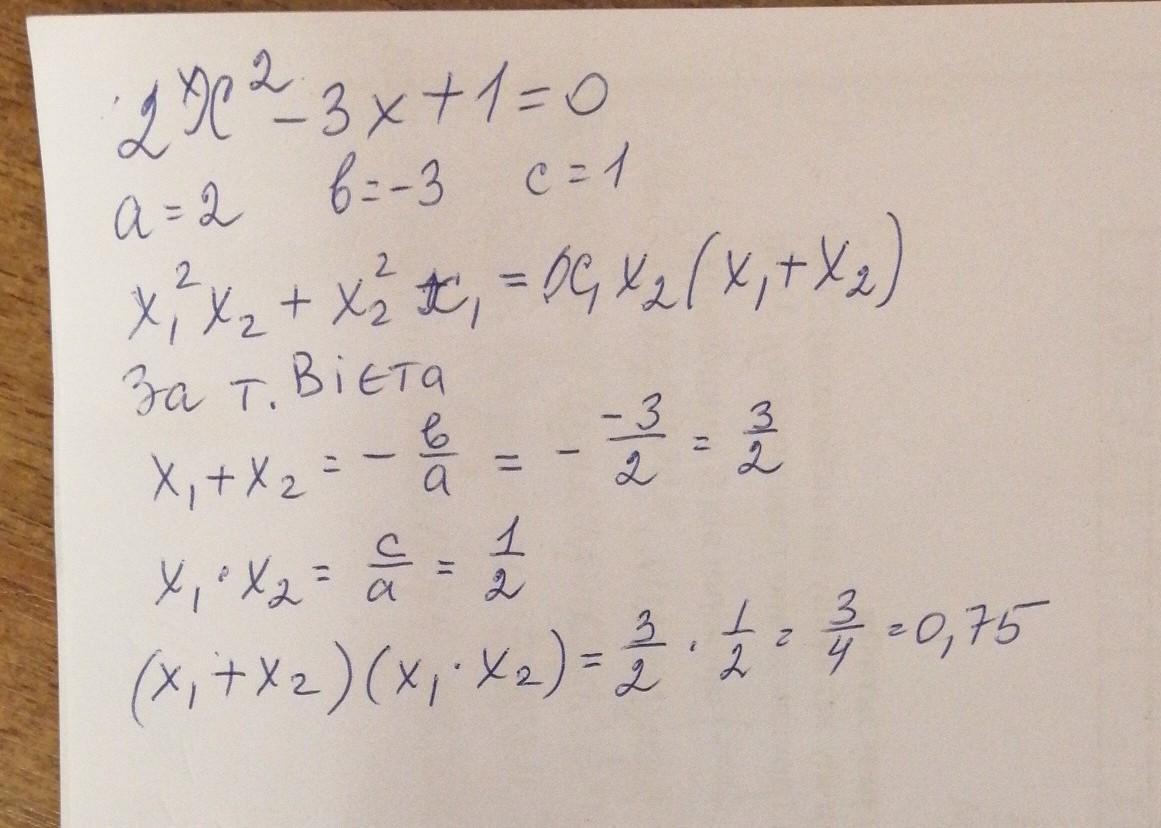 2x² - 3x + 1 = 0
a = 2 в = -3 c = 1
x₁²x₂ + x₂²x₁ = x₁x₂(x₁ + x₂)
За т. Вієта
x₁ + x₂ = - в/a = - -3/2 = 3/2
x₁ · x₂ = c/a = 1/2
(x₁ + x₂)(x₁ · x₂) = 3/2 · 1/2 = 3/4 = 0,75